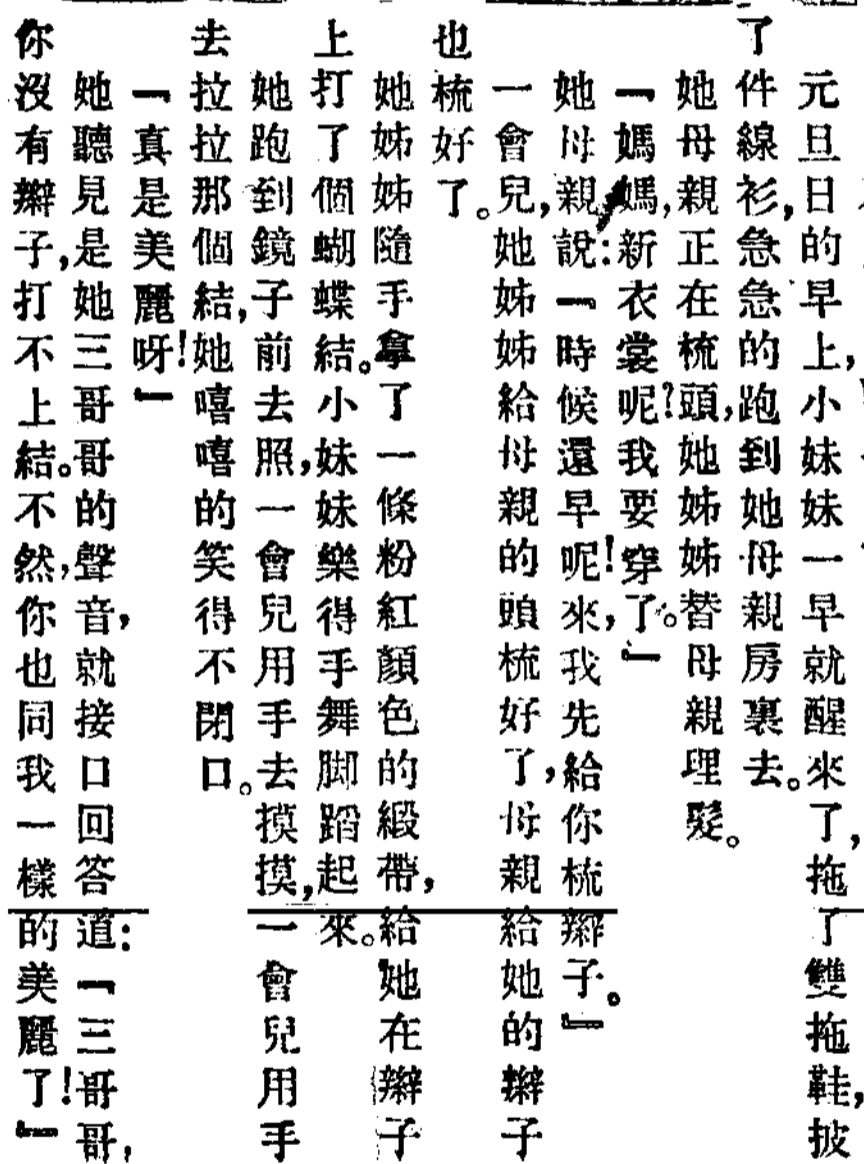 元旦日的早上，小妹妹一早就醒來了，拖了雙拖鞋，披
了件線衫，急急的跑到她母親房裏去。
她母親正在梳頭，她姊姊替母親理髮。
『媽媽，新衣裳呢？我要穿了。』
她母親說：『時候還早呢！來，我先給你梳辮子。』
一會兒，她姊姊給母親的頭梳好了，母親給她的辮子
也梳好了。
她姊姊隨手拿了一條粉紅顏色的緞帶，給她在辮子
上打了個蝴蝶結。小妹妹樂得手舞脚蹈起來。
她跑到鏡子前去照，一會兒用手去摸摸，一會兒用手
去拉拉那個結，她嘻嘻的笑得不閉口。
『真是美麗呀！』
她聽見是她三哥哥的聲音，就接口回答道：『三哥哥，
你沒有辮子，打不上結。不然，你也同我一樣的美麗了！』